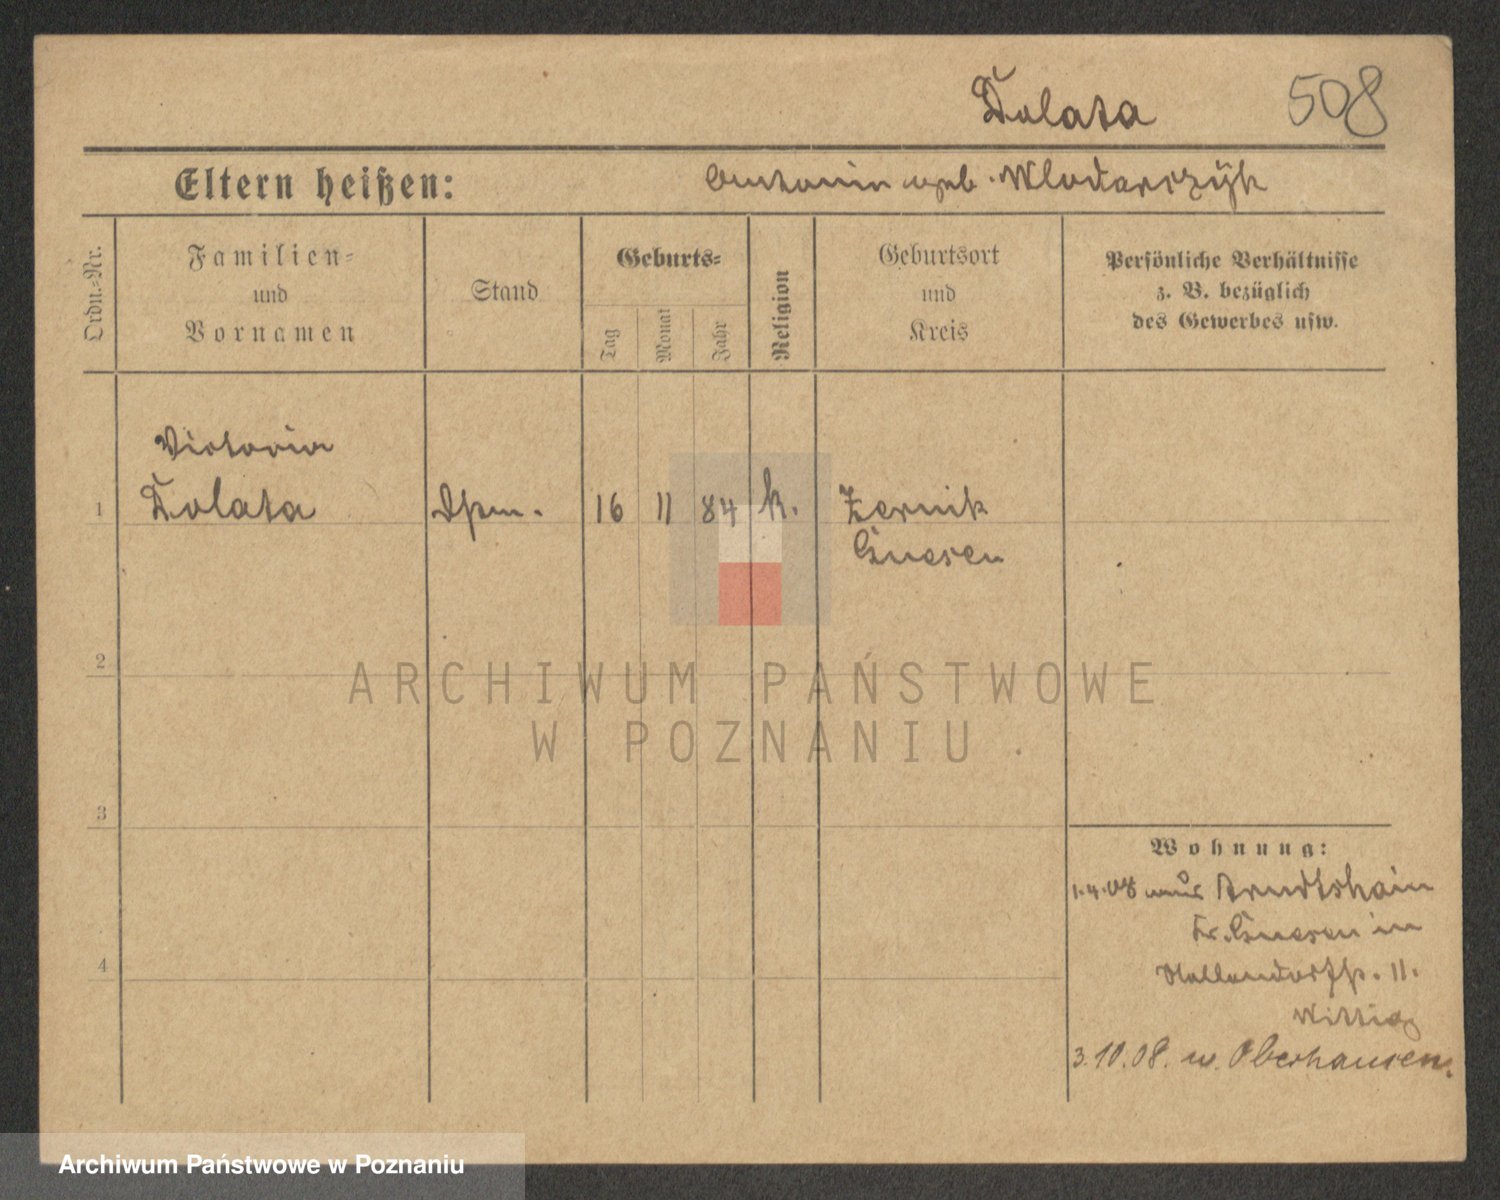 Dolata 508
Eltern heißen: Antonin geb. Wlodarczÿk
Ordn.-Nr.
Familien-
und
Vornamen
Stand
Geburts-
Tag
Monat
Jahr
Religion
Geburtsort
und
Kreis
Persönliche Verhältnisse
z. B. bezüglich
des Gewerbes usw.
Victoria
1 Dolata 16 11 84 k. Zernik
Gnesen
2
3
4
Wohnung:
1.4.08 aus Arndtshain
Kr. Gnesen in
11.
Wittig
3.10.08. n. Oberhausen.
ARCHIWUM PAŃSTWOWE
W POZNANIU
Archiwum Państwowe w Poznaniu